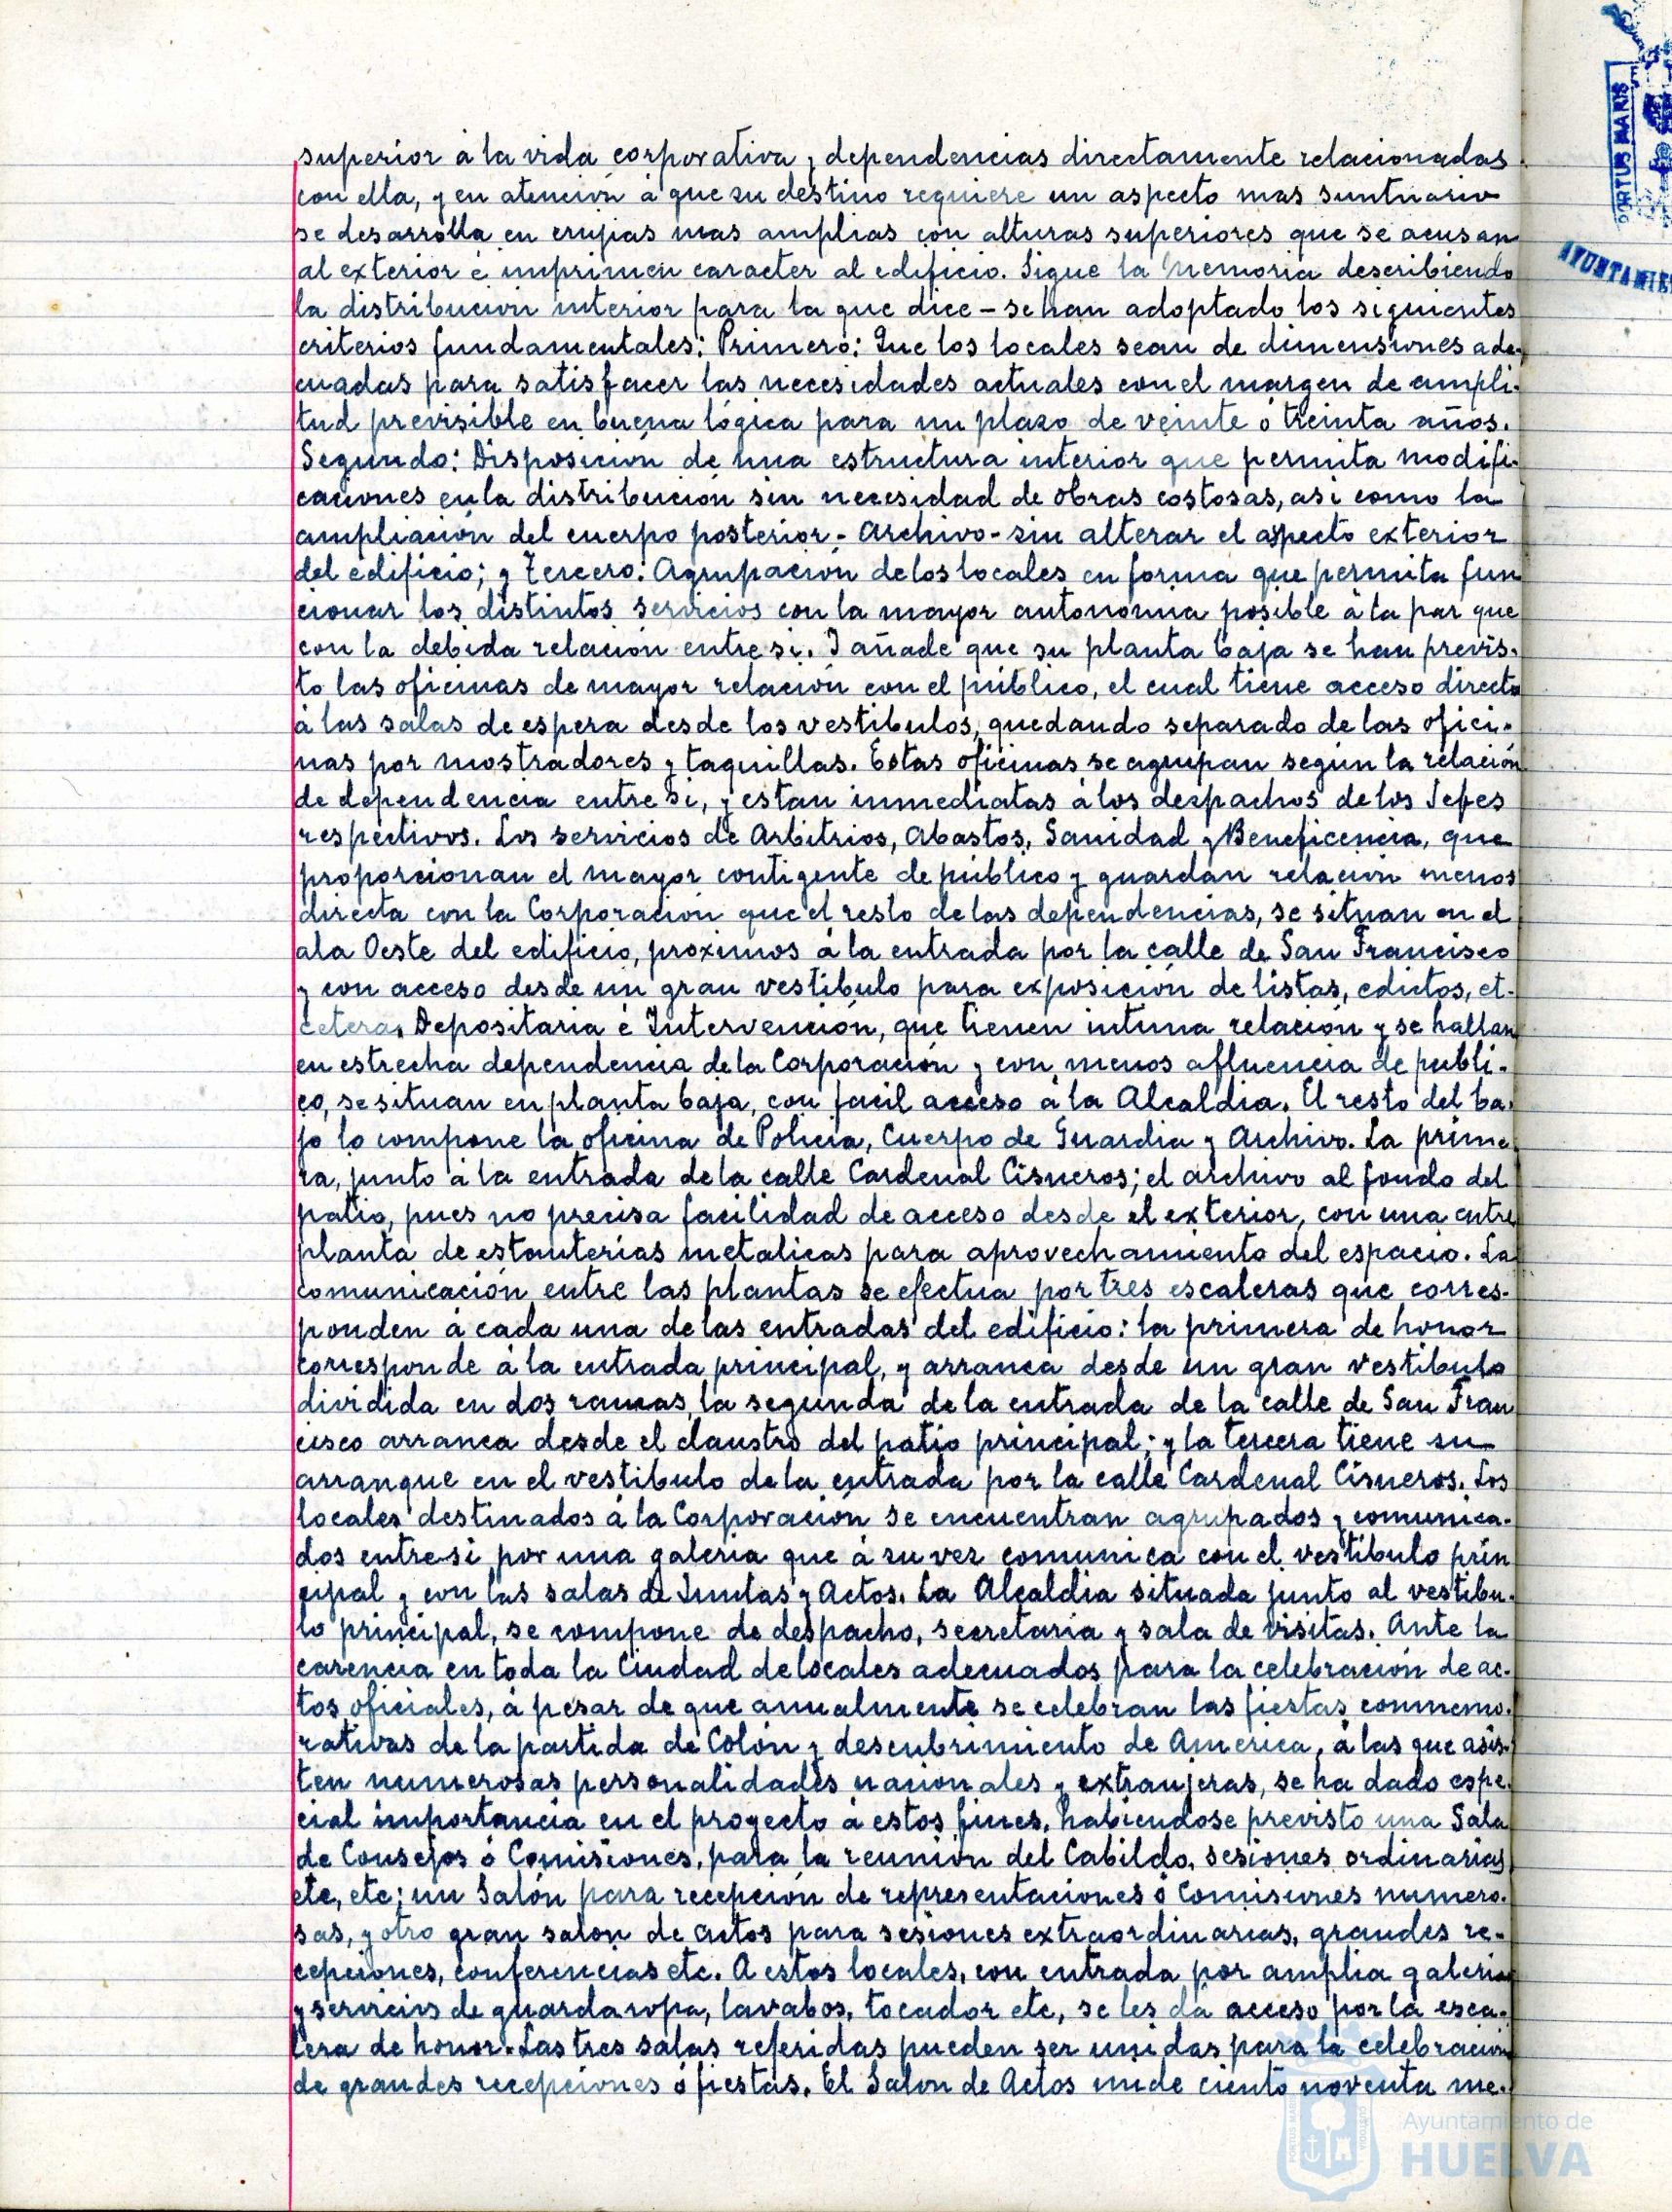 superior á la vida corporativa y dependencias directamente relacionadas
con ella, y en atención á que su destino requiere un aspecto mas suntuario
se desarrolla en crujias mas amplias con alturas superiores que se acusan
al exterior é imprimen caracter al edificio. Sigue la Memoria describiendo
la distribucion interior para la que dice - se han adoptado los siguientes
criterios fundamentales: Primero: Que los locales sean de dimensiones ade-
cuadas para satisfacer las necesidades actuales con el margen de ampli-
tud previsible en buena lógica para un plazo de veinte ó treinta años.
Segundo: Disposicion de una estructura interior que permita modifi-
caciones en la distribución sin necesidad de obras costosas, asi como la
ampliación del cuerpo posterior - Archivo - sin alterar el aspecto exterior
del edificio; y Tercero: Agrupacion de los locales en forma que permita fun
cionar los distintos servicios con la mayor autonomia posible á la par que
con la debida relacion entre si. I añade que su planta baja se han previs-
to las oficinas de mayor relacion con el público, el cual tiene acceso directo
á las salas de espera desde los vestibulos, quedando separado de las ofici-
nas por mostradores y taquillas. Estas oficinas se agrupan según la relación
de dependencia entre si, y estan inmediatas á los despachos de los Jefes
respectivos. Los servicios de Arbitrios, Abastos, Sanidad y Beneficencia, que
proporcionan el mayor contigente de público y guardan relacion menos
directa con la Corporacion que el resto de las dependencias, se situan en el
ala Oeste del edificio, proximos á la entrada por la calle de San Francisco
y con acceso desde un gran vestibulo para exposición de listas, edictos, et-
cetera. Depositaria é Intervención, que tienen intima relación y se hallan
en estrecha dependencia de la Corporación y con menos afluencia de publi-
co, se situan en planta baja, con facil acceso á la Alcaldia. El resto del ba-
jo lo compone la oficina de Policia, Cuerpo de Guardia y Archivo. La prime
ra, junto á la entrada de la calle Cardenal Cisneros; el archivo al fondo del
patio, pues no precisa facilidad de acceso desde el exterior, con una entre
planta de estanterias metalicas para aprovechamiento del espacio. La
comunicación entre las plantas se efectua por tres escaleras que corres-
ponden á cada una de las entradas del edificio: la primera de honor
corresponde á la entrada principal, y arranca desde un gran vestibulo
dividida en dos ramas, la segunda de la entrada de la calle de San Fran
cisco arranca desde el claustro del patio principal; y la tercera tiene su
arranque en el vestibulo de la entrada por la calle Cardenal Cisneros. Los
locales destinados á la Corporacion se encuentran agrupados y comunica-
dos entre si por una galeria que á su vez comunica con el vestibulo prin
cipal y con las salas de Juntas y Actos. La Alcaldia situada junto al vestibu-
lo principal, se compone de despacho, secretaria y sala de visitas. Ante la
carencia en toda la Ciudad de locales adecuados para la celebracion de ac-
tos oficiales, á pesar de que anualmente se celebran las fiestas conmemo-
rativas de la partida de Colón y descubrimiento de America, á las que asis-
ten numerosas personalidades nacionales y extranjeras, se ha dado espe-
cial importancia en el proyecto á estos fines, habiendose previsto una Sala
de Consejos ó Comisiones, para la reunión del Cabildo, sesiones ordinarias
etc, etc; un Salón para recepcion de representaciones ó Comisiones numero-
sas, y otro gran salon de actos para sesiones extraordinarias, grandes re-
cepciones, conferencias etc. A estos locales, con entrada por amplia galeria
y servicios de guardaropa, lavabos, tocador etc, se les dá acceso por la esca-
lera de honor. Las tres salas referidas pueden ser unidas para la celebracion
de grandes recepciones ó fiestas. El Salon de Actos mide ciento noventa me-
PORTUS MARIS
Ayuntamiento de
HUELVA